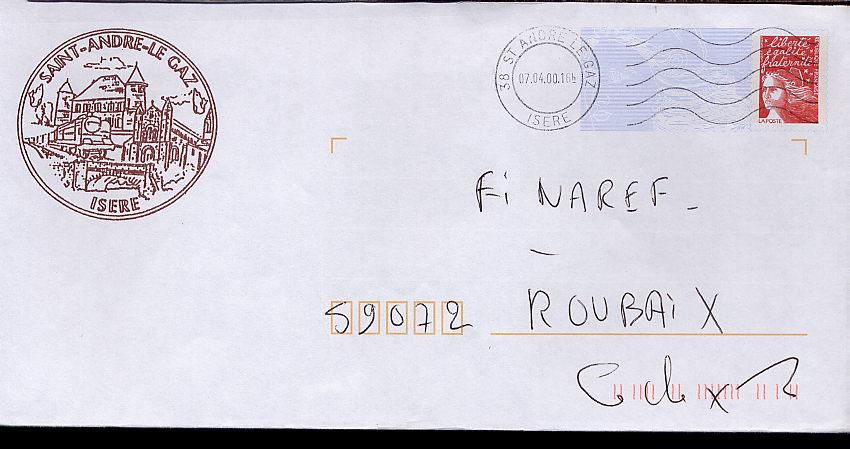 SAINT-ANDRE-LE GAZ
ISERE
38 ST ANDRE LE GAZ
07.04.00.16H
ISERE
liberté
égalité
fraternité
LA POSTE
Fi NAREF
59072 ROUBAiX
Cedex 2